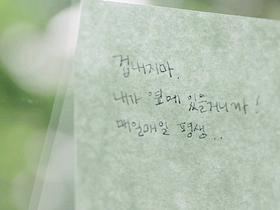 겁내지마.
내가 옆에 있을거니까!
매일매일 평생..